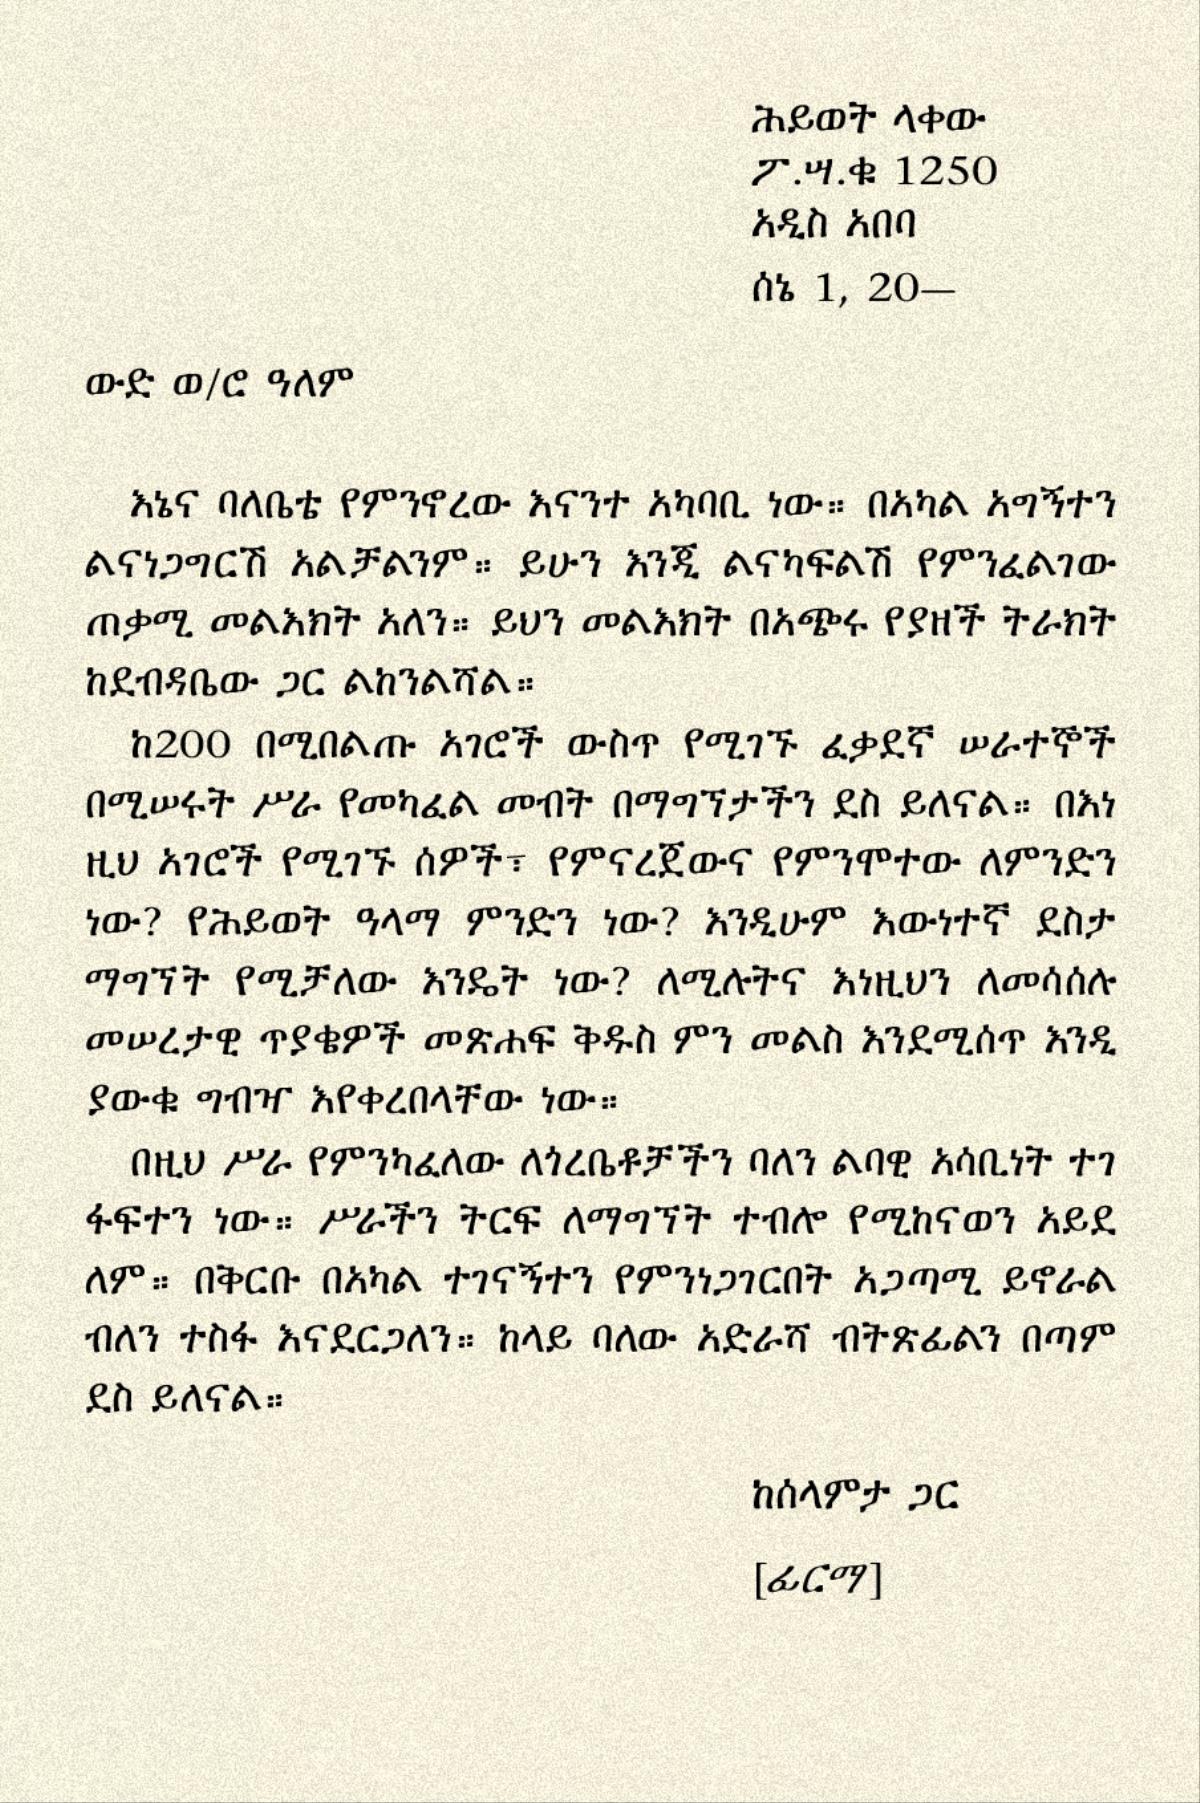 ሕይወት ላቀው
ፖ.ሣ.ቁ 1250
አዲስ አበባ
ሰኔ 1, 20—
ውድ ወ/ሮ ዓለም
እኔና ባለቤቴ የምንኖረው እናንተ አካባቢ ነው። በአካል አግኝተን
ልናነጋግርሽ አልቻልንም። ይሁን እንጂ ልናካፍልሽ የምንፈልገው
ጠቃሚ መልእክት አለን። ይህን መልእክት በአጭሩ የያዘች ትራክት
ከደብዳቤው ጋር ልከንልሻል።
ከ200 በሚበልጡ አገሮች ውስጥ የሚገኙ ፈቃደኛ ሠራተኞች
በሚሠሩት ሥራ የመካፈል መብት በማግኘታችን ደስ ይለናል። በእነ
ዚህ አገሮች የሚገኙ ሰዎች፣ የምናረጀውና የምንሞተው ለምንድን
ነው? የሕይወት ዓላማ ምንድን ነው? እንዲሁም እውነተኛ ደስታ
ማግኘት የሚቻለው እንዴት ነው? ለሚሉትና እነዚህን ለመሳሰሉ
መሠረታዊ ጥያቄዎች መጽሐፍ ቅዱስ ምን መልስ እንደሚሰጥ እንዲ
ያውቁ ግብዣ እየቀረበላቸው ነው።
በዚህ ሥራ የምንካፈለው ለጎረቤቶቻችን ባለን ልባዊ አሳቢነት ተገ
ፋፍተን ነው። ሥራችን ትርፍ ለማግኘት ተብሎ የሚከናወን አይደ
ለም። በቅርቡ በአካል ተገናኝተን የምንነጋገርበት አጋጣሚ ይኖራል
ብለን ተስፋ እናደርጋለን። ከላይ ባለው አድራሻ ብትጽፊልን በጣም
ደስ ይለናል።
ከሰላምታ ጋር
[ፊርማ]